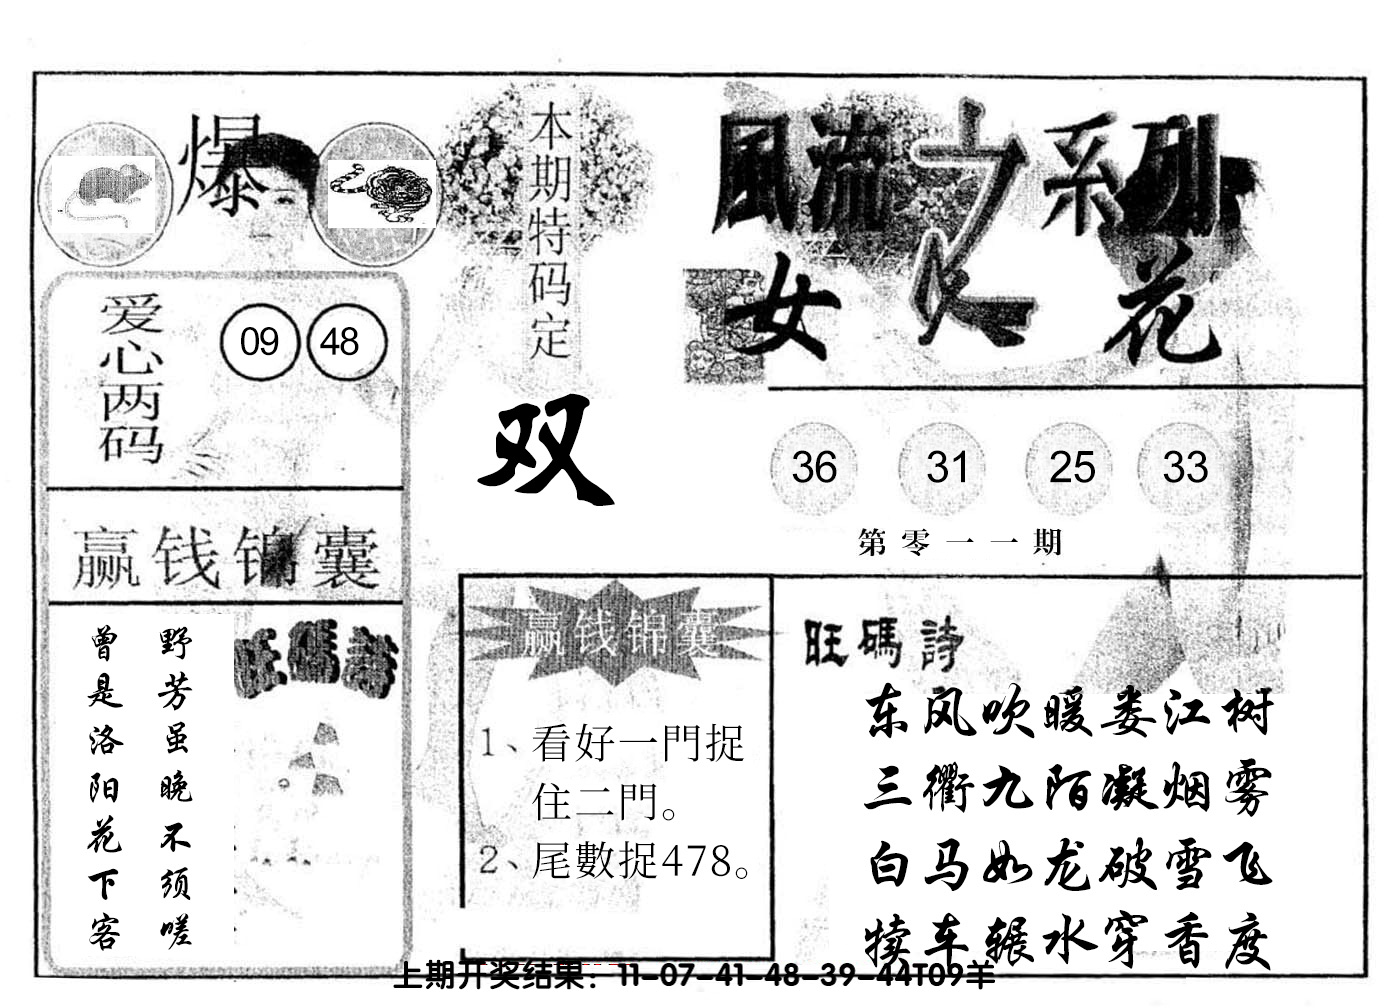 爆
本期特码定
双
風流之系列
女人花
爱心两码
09 48
36 31 25 33
第零一一期
赢钱锦囊
曾是洛阳花下客
野芳虽晚不须嗟
旺碼詩
赢钱锦囊
1、看好一門捉
住二門。
2、尾數捉478。
旺碼詩
东风吹暖娄江树
三衢九陌凝烟雾
白马如龙破雪飞
犊车辗水穿香度
上期开奖结果：11-07-41-48-39-44T09羊